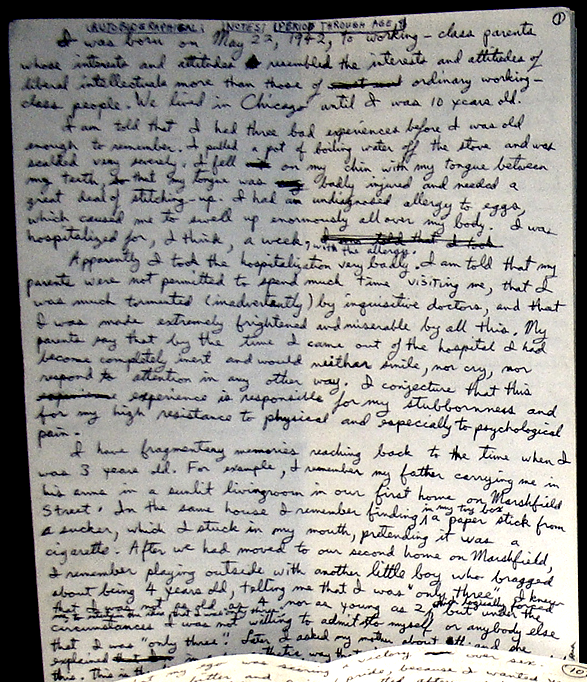 AUTOBIOGRAPHICAL NOTES: PERIOD THROUGH AGE
1
I was born on May 22, 1942, to working-class parents
whose interests and attitudes resembled the interests and attitudes of
liberal intellectuals more than those of ordinary working-
class people. We lived in Chicago until I was 10 years old.
I am told that I had three bad experiences before I was old
enough to remember. I pulled a pot of boiling water off the stove and was
scalded very severely. I fell on my chin with my tongue between
my teeth, so that my tongue was badly injured and needed a
great deal of stitching-up. I had an undiagnosed allergy to eggs,
which caused me to swell up enormously all over my body. I was
hospitalized for, I think, a week, I am told that I took
with the allergy.
Apparently I took the hospitalization very badly. I am told that my
parents were not permitted to spend much time visiting me, that I
was much tormented (inadvertently) by inquisitive doctors, and that
I was made extremely frightened and miserable by all this. My
parents say that by the time I came out of the hospital I had
become completely inert and would neither smile, nor cry, nor
respond to attention in any other way. I conjecture that this
experience is responsible for my stubbornness and
for my high resistance to physical and especially to psychological
pain.
I have fragmentary memories reaching back to the time when I
was 3 years old. For example, I remember my father carrying me in
his arms in a sunlit livingroom in our first home on Marshfield
Street. In the same house I remember finding in my toy box a paper stick from
a sucker, which I stuck in my mouth, pretending it was a
cigarette. After we had moved to our second home on Marshfield,
I remember playing outside with another little boy who bragged
about being 4 years old, telling me that I was "only three". I knew
that I was not as old as 4, nor as young as 2, but under the
circumstances I was not willing to admit to myself or anybody else
that I was "only three". Later I asked my mother about it and she
explained that's way
this. This is th
my ego was
because I wanted
10